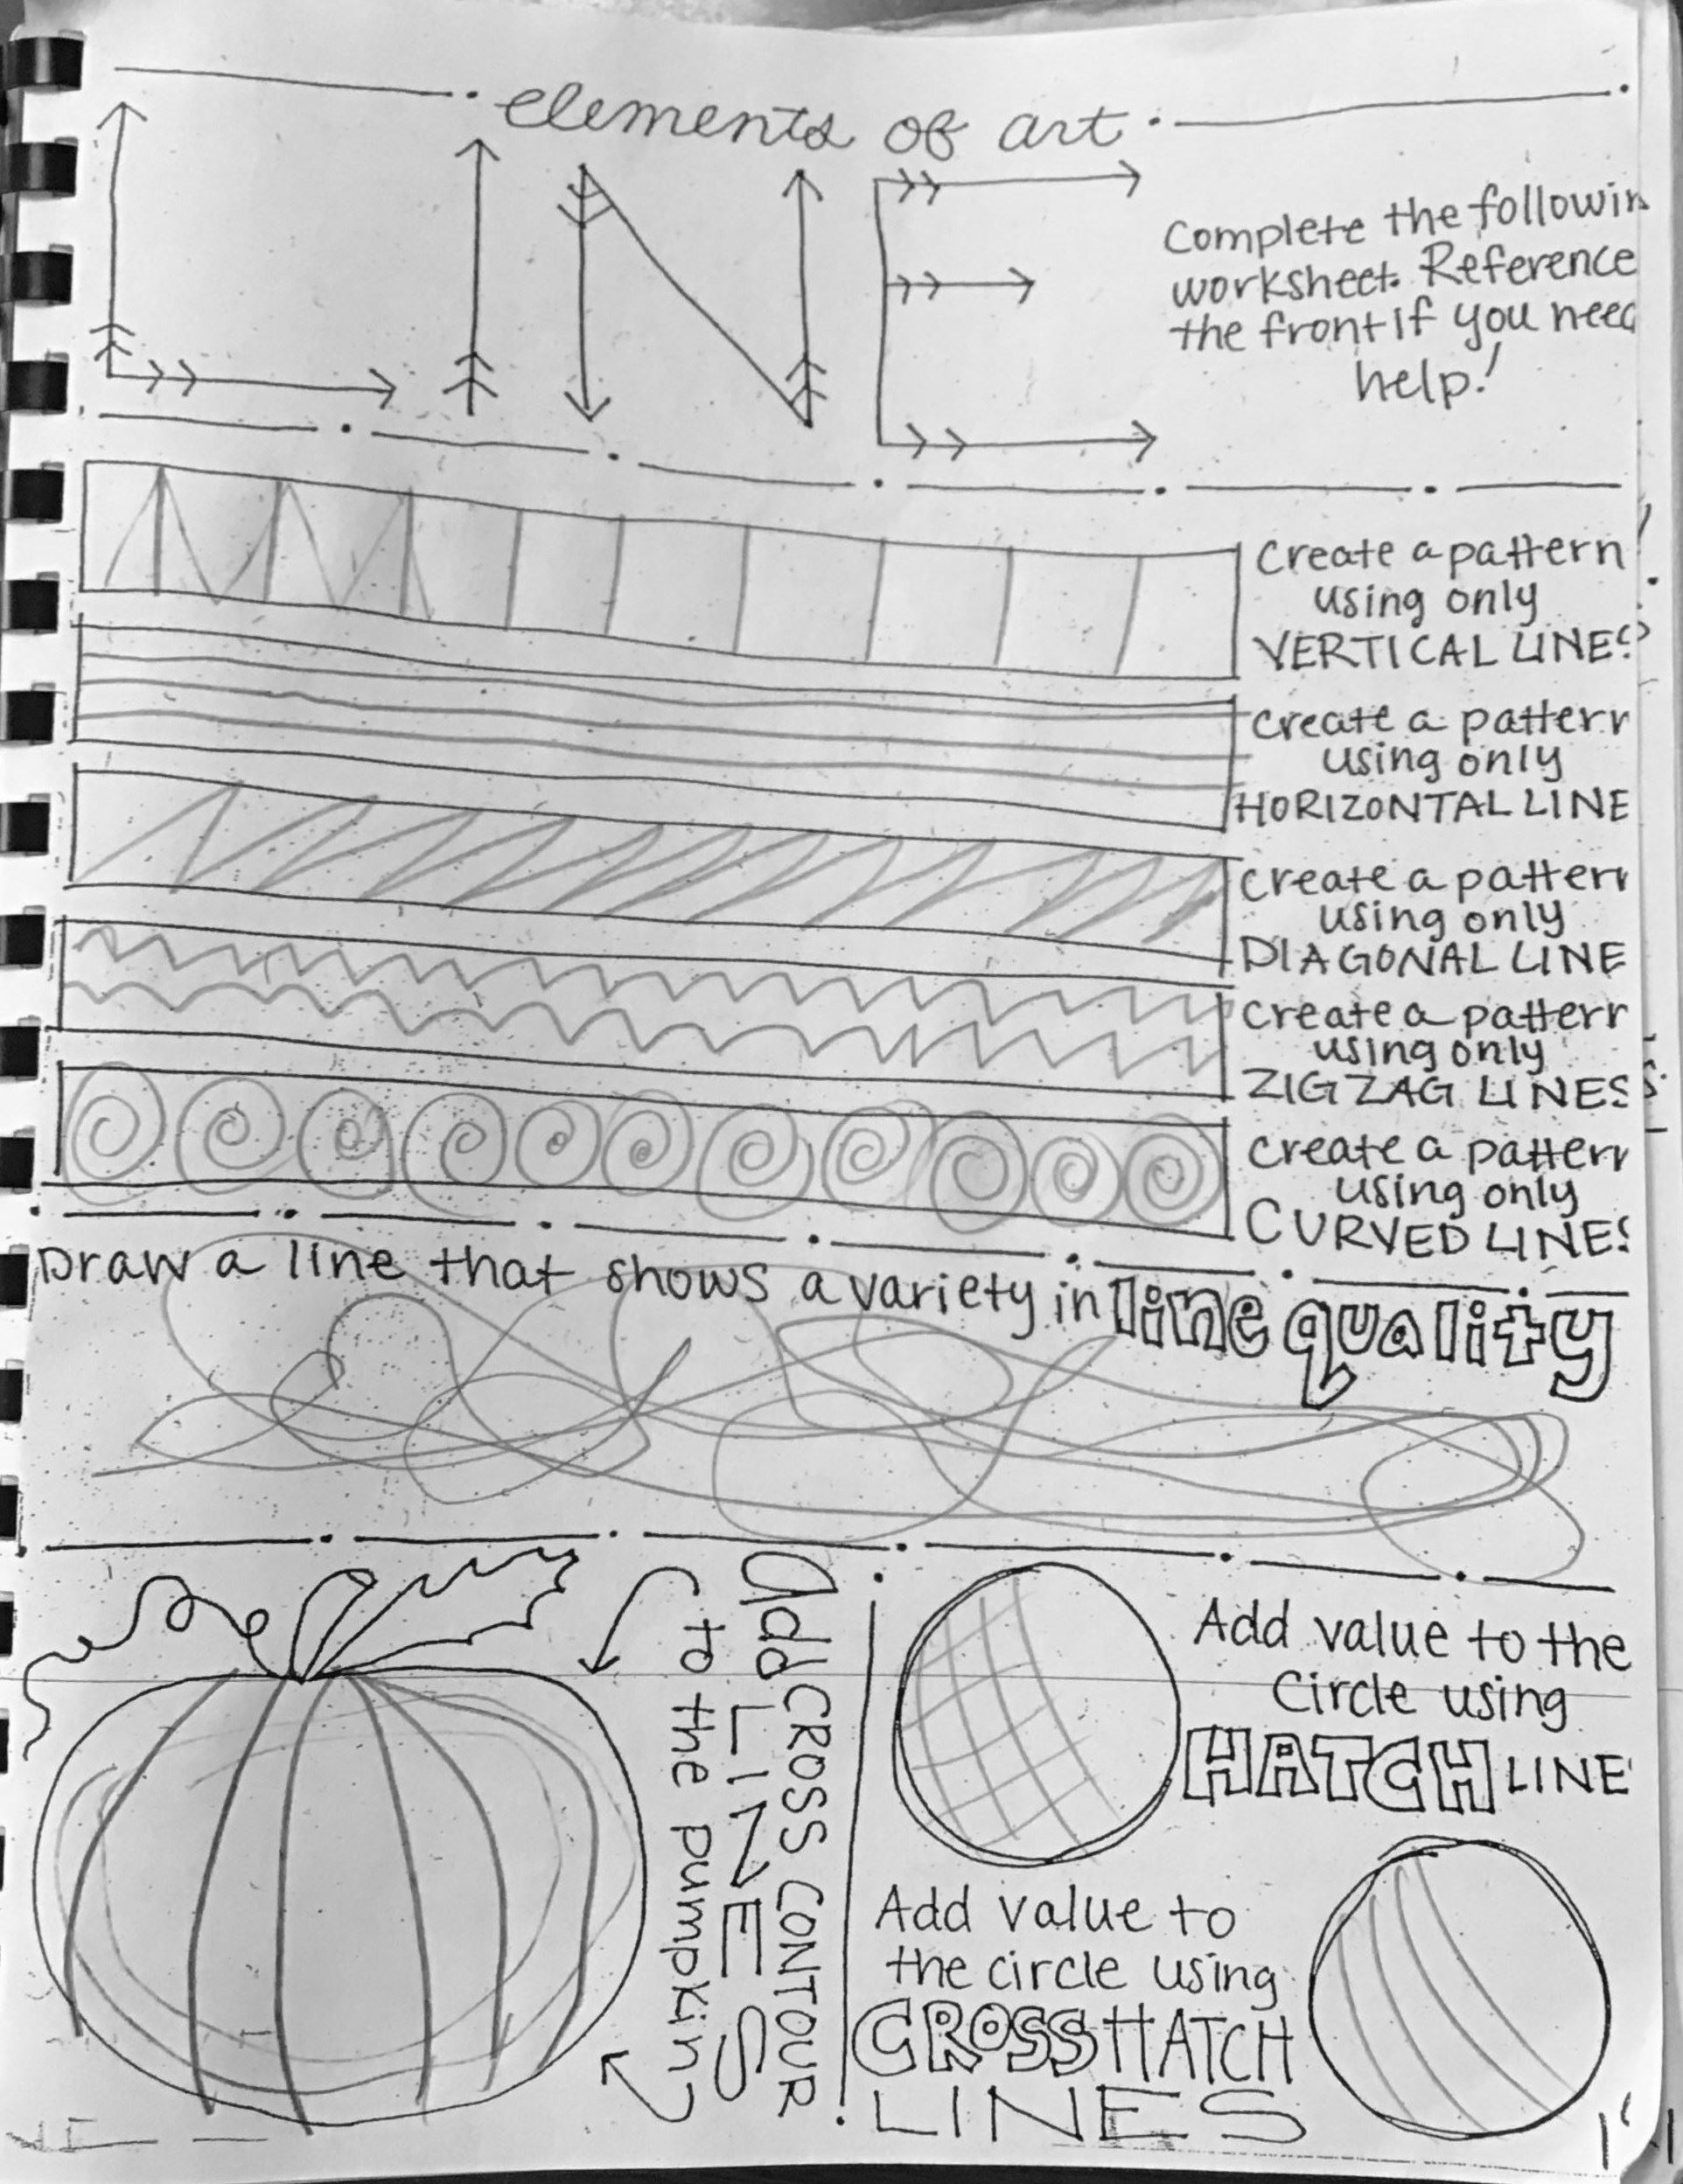 elements of art
LINE
Complete the followin
worksheet. Reference
the front if you need
help!
Create a pattern
using only
VERTICAL LINES
Create a pattern
using only
HORIZONTAL LINE
Create a pattern
using only
DIAGONAL LINE
Create a pattern
using only
ZIGZAG LINES
Create a pattern
using only
CURVED LINES
Draw a line that shows a variety in line quality
Add CROSS CONTOUR
LINES
to the pumpkin
Add value to the
Circle using
HATCH LINE
Add value to
the circle using
CROSS HATCH
LINES